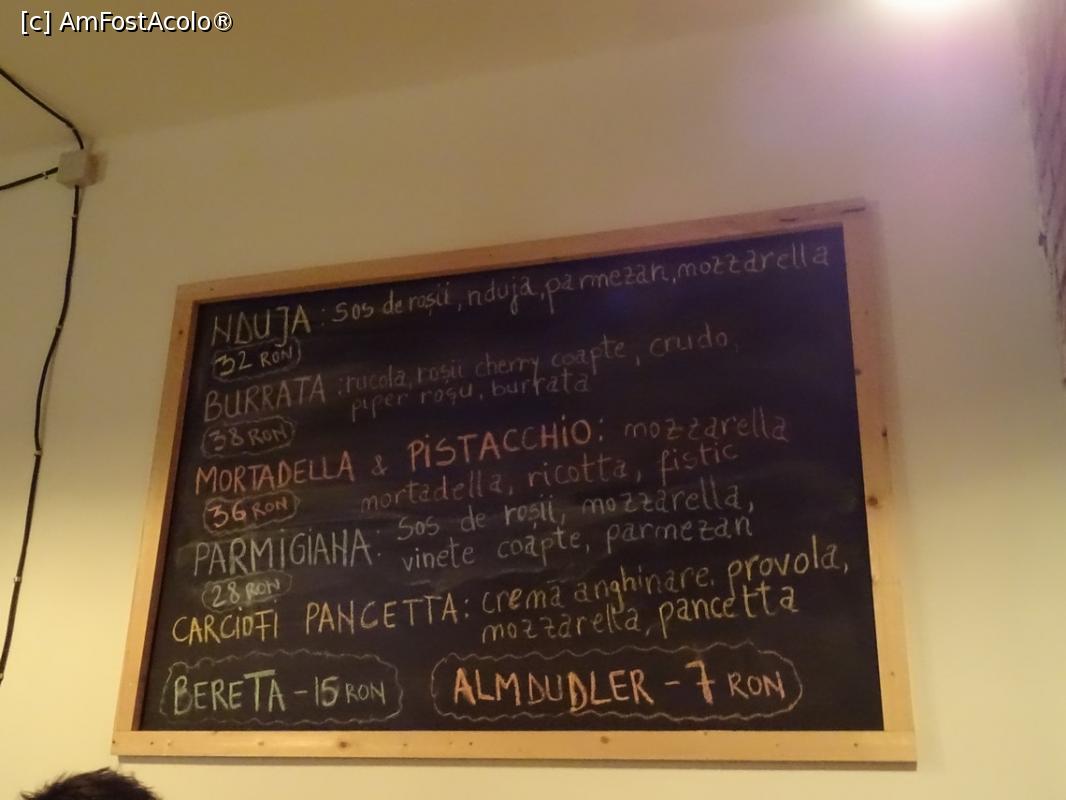 [c] AmFostAcolo®
NDUJA: Sos de roșii, nduja, parmezan, mozzarella
32 RON
BURRATA: rucola, roșii cherry coapte, crudo,
piper roșu, burrata
38 RON
MORTADELLA & PiSTACCHiO: mozzarella
mortadella, ricotta, fistic
36 RON
PARMIGIANA: Sos de roșii, mozzarella,
vinete coapte, parmezan
28 RON
CARCiOFI PANCETTA: cremă anghinare, provola,
mozzarella, pancetta
BERETA - 15 RON
ALMDUDLER - 7 RON